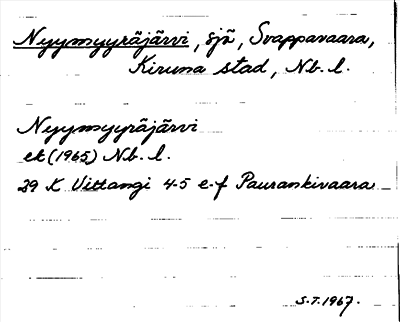 Nyymyyräjärvi, sjö, Svappavaara,
Kiruna stad, Nb. l.
Nyymyyräjärvi
ek (1965) Nb. l.
29 K Vittangi 4-5 e-f Paurankivaara
S.T. 1967.